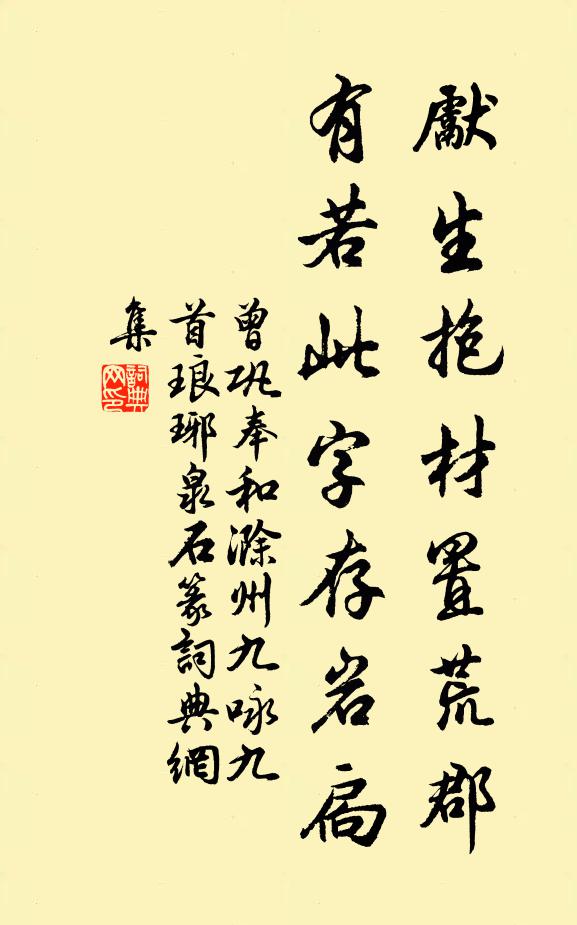 獻生抱材置荒郡
有若此字存岩扃
曾巩奉和滁州九咏九
首琅琊泉石篆詞典網
集
詞典
网印